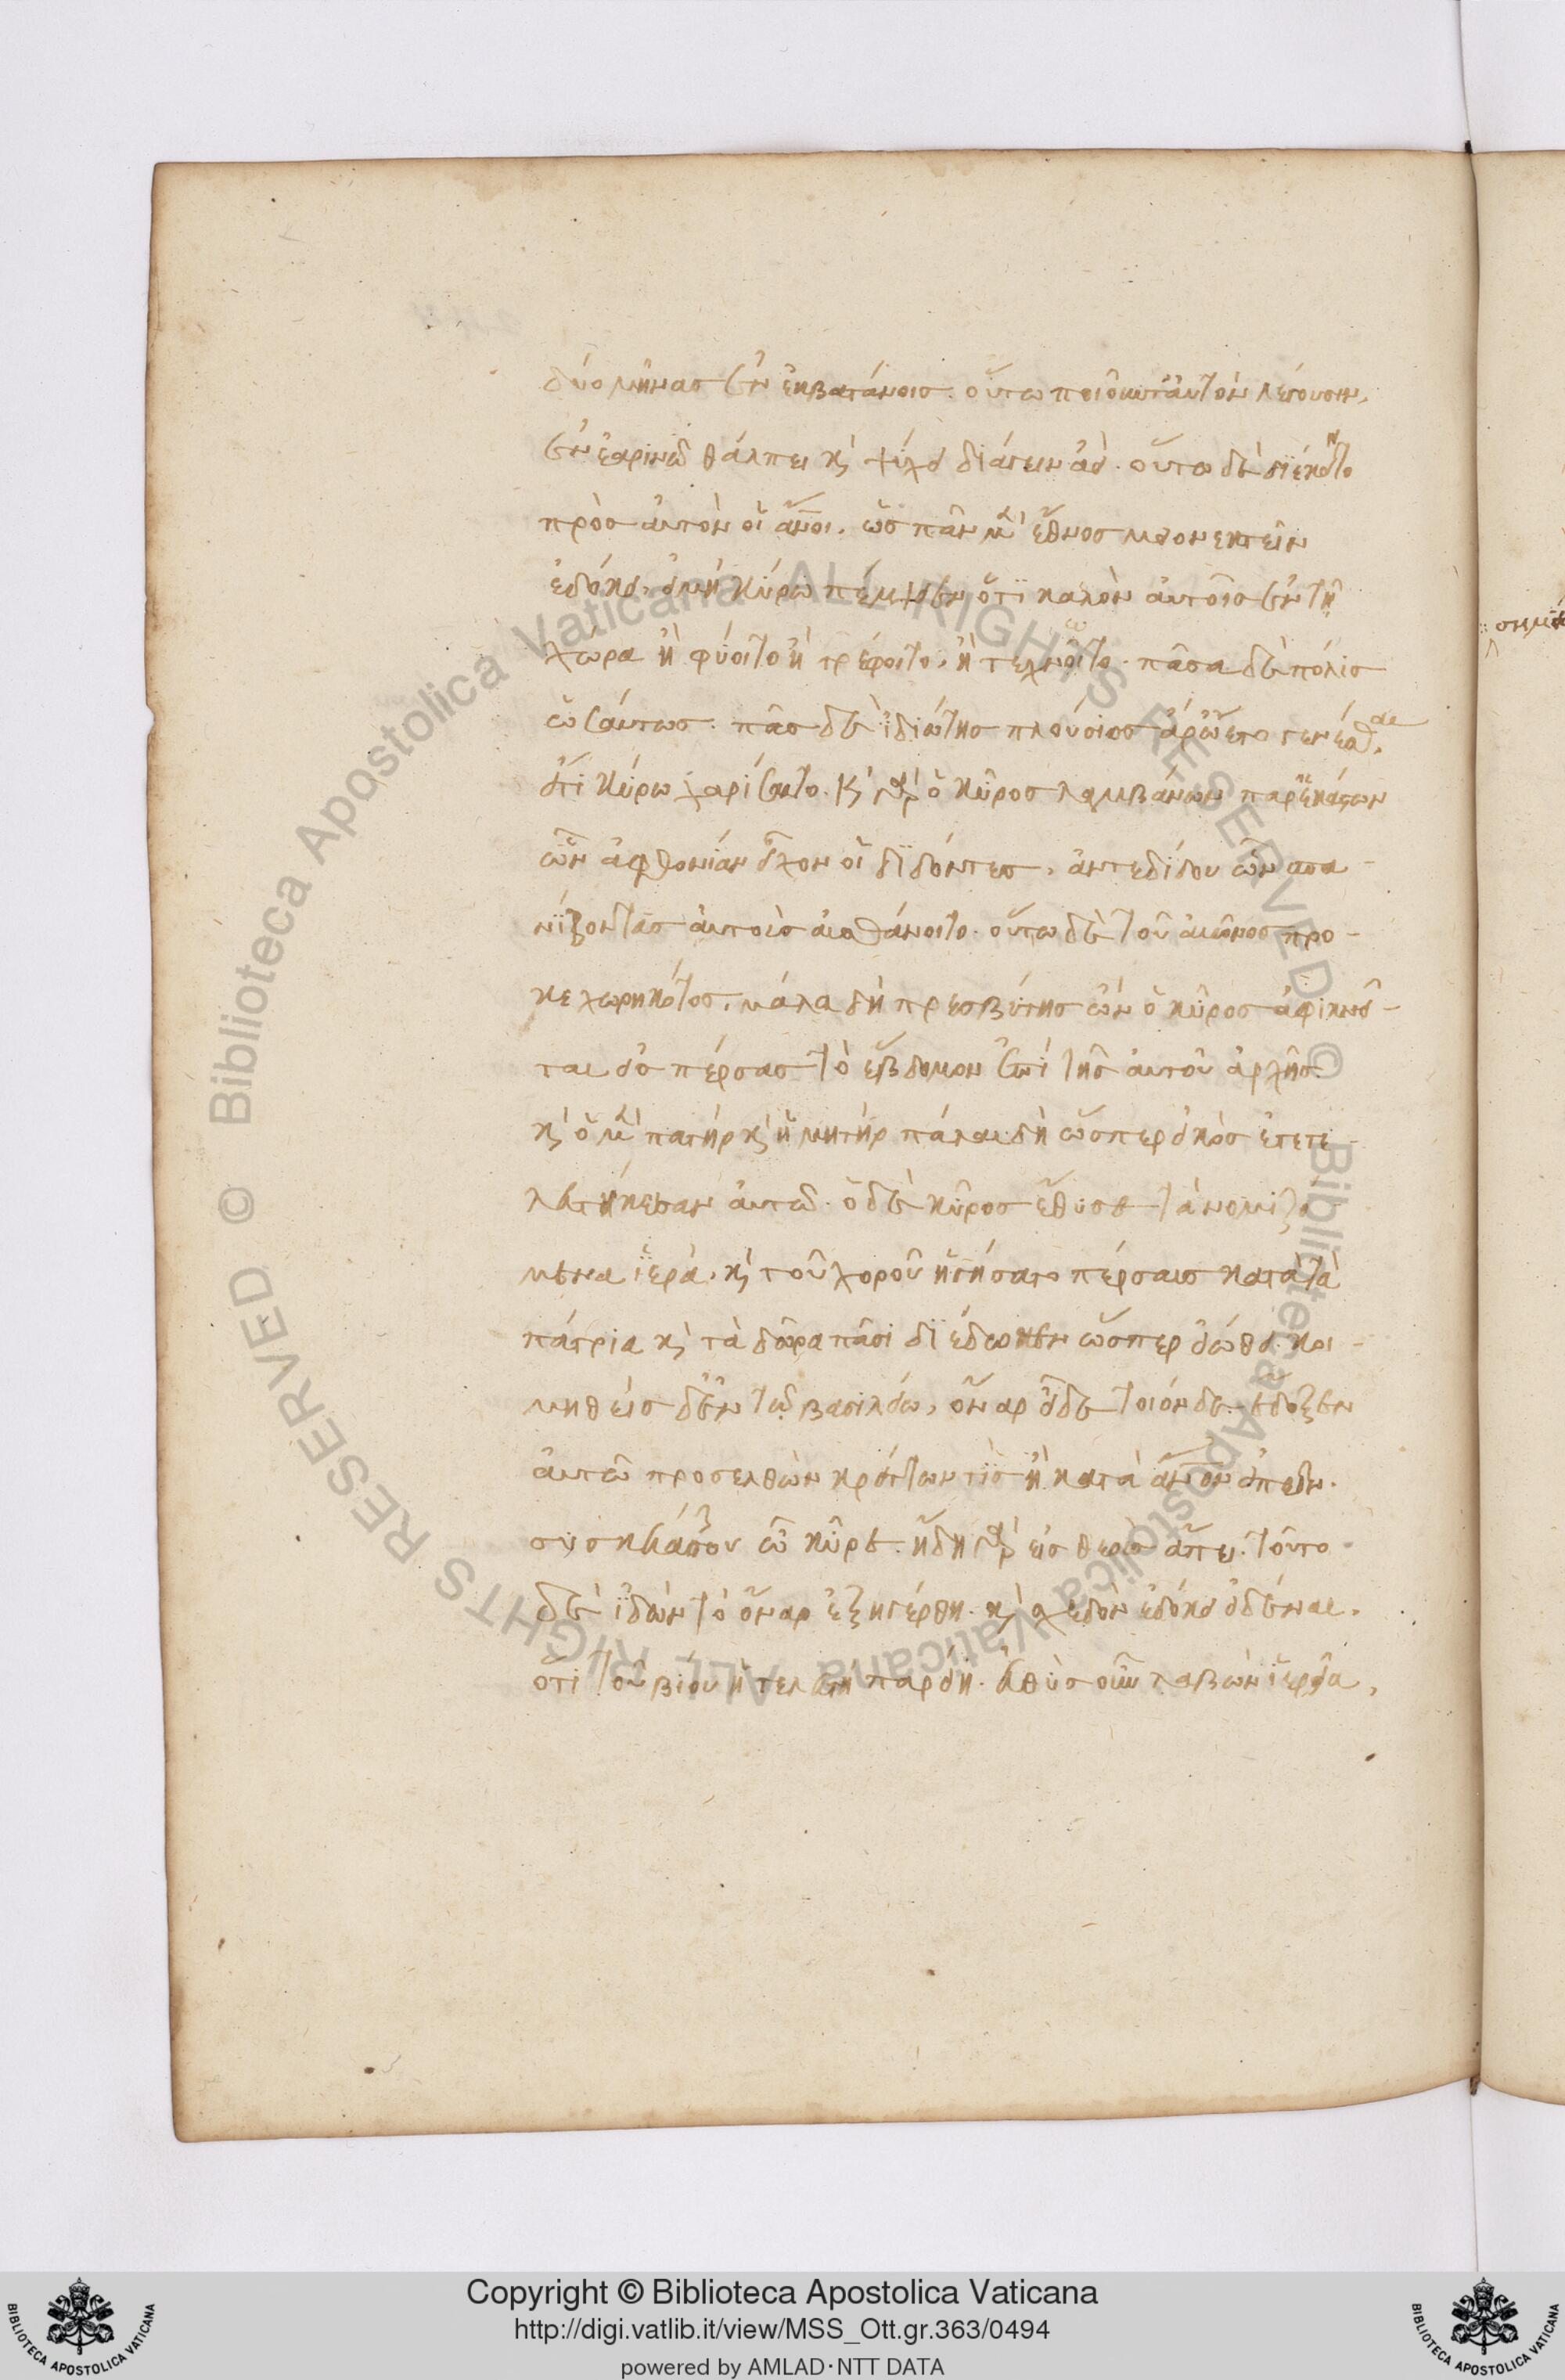 δύο μῆνας ἐν ἐκβατάνοις. οὕτω ποιοῦντ' αὐτὸν λέγουσιν,
ἐν ἐαρινῶ θάλπει κ ψύχει διάγειν ἀεί. οὕτω δὲ διέκειντο
πρὸς αὐτὸν οἱ ἄνοι. ὡς πᾶν μὲν ἔθνος μειονεκτεῖν
ἐδόκει, εἰ μὴ κύρω πέμψειεν ὅτι καλὸν αὐτοῖς ἐν τῆ
χώρα ἢ φύοιτο ἢ τρέφοιτο, ἢ τεχνῶτο. πᾶσα δὲ πόλις
ὡσαύτως. πᾶς δὲ ἰδιώτης πλούσιος γενέσθαι,
εἴ τι κύρω χαρίσαιτο. κ γὰρ ὁ κῦρος λαμβάνων παρ' ἑκάστων
ὧν ἀφθονίαν εἶχον οἱ διδόντες, ἀντεδίδου ὧν σπα-
νίζοντας αὐτοὺς αἰσθάνοιτο. οὕτω δὲ τοῦ αἰῶνος προ-
κεχωρηκότος, μάλα δὴ πρεσβύτης ὢν ὁ κῦρος ἀφικνεῖ-
ται εἰς πέρσας τὸ ἕβδομον ἐπὶ τῆς αὐτοῦ ἀρχῆς.
κ ὁ μὲν πατὴρ κ ἡ μήτηρ πάλαι δὴ ὥσπερ εἰκὸς ἐτετε-
λευτήκεσαν αὐτῶ. ὁ δὲ κῦρος ἔθυσε τὰ νομιζό
μενα ἱερά. κ τοῦ χοροῦ ἡγήσατο πέρσαις κατὰ τὰ
πάτρια κ τὰ δῶρα πᾶσι διέδωκεν ὥσπερ εἰώθει. κοι-
μηθεὶς δ' ἐν τῶ βασιλείω, ὄναρ εἶδε τοιόνδε. ἔδοξεν
αὐτῶ προσελθὼν κρείττων τὶς ἢ κατὰ ἄνον εἰπεῖν.
συσκευάζου ὦ κῦρε. ἤδη γὰρ εἰς θεοὺς ἄπει. τοῦτο
δὲ ἰδὼν τὸ ὄναρ ἐξηγέρθη. κ σχεδὸν ἐδόκει εἰδέναι,
ὅτι τοῦ βίου ἡ τελευτὴ παρείη. εὐθὺς οὖν λαβὼν ἱερεῖα,
Copyright © Biblioteca Apostolica Vaticana
http://digi.vatlib.it/view/MSS_Ott.gr.363/0494
powered by AMLAD·NTT DATA